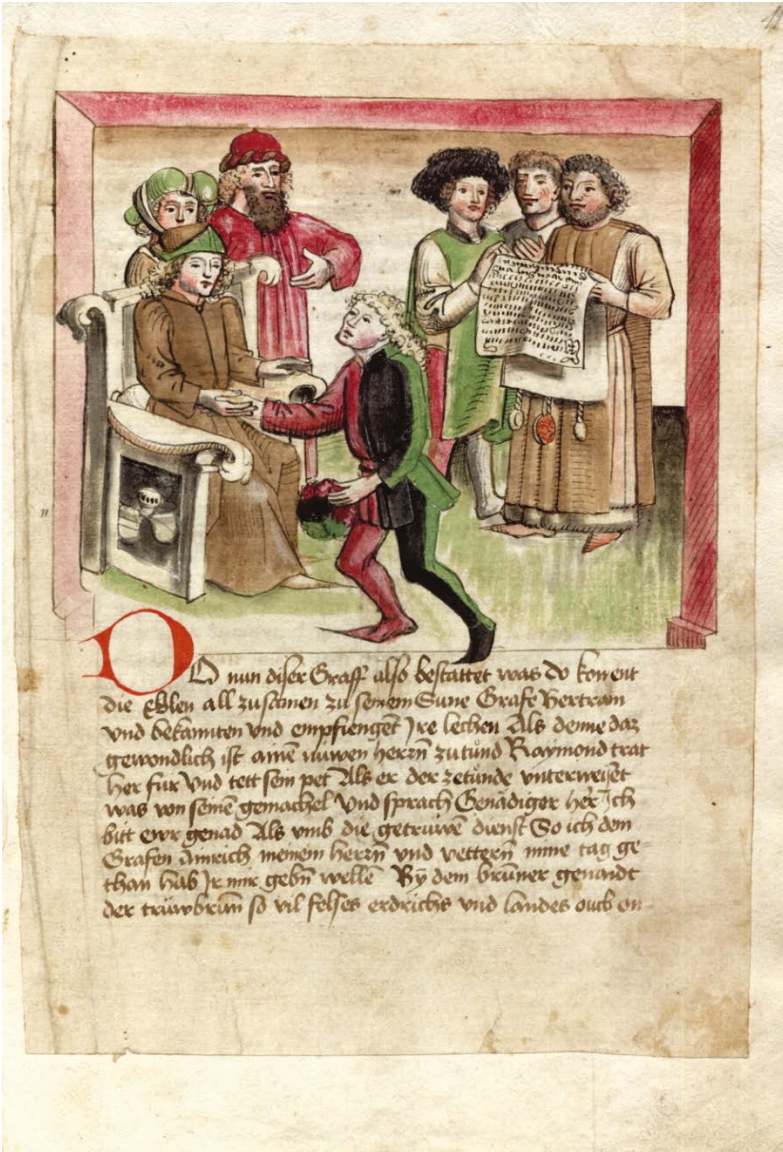 DO nun diser Graff also bestattet was do koment
die Edlen all zusamen zu seinem Sune Grafe Bertram
vnd bekannten vnd empfiengent Jre lechen Als denne daz
gewondlich ist ainē nuwen herrn zu tund Raymond trat
her fur Vnd tett sein pet Als er der ze tunde vnterweiset
was von seinē gemachel Vnd sprach Genadiger her Ich
bitt ewr genad Als vmb die getruwē dienst So ich dem
Grafen Ameich meinem herrn vnd vettern mine tag ge-
than hab Jr mir gebn welle By dem bruner genandt
der trūwbrun so vil felses erdrichs vnd landes ouch on